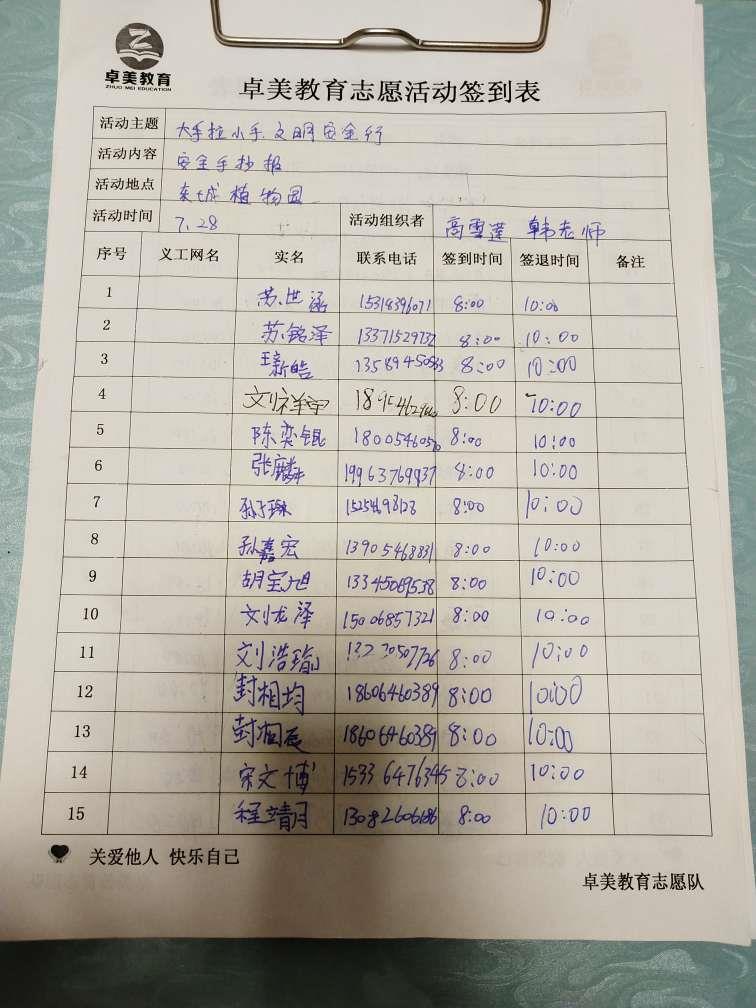 卓美教育
ZHUO MEI EDUCATION
卓美教育志愿活动签到表
活动主题 大手拉小手文明安全行
活动内容 安全手抄报
活动地点 东城植物园
活动时间 7.28 活动组织者 高雪莲 韩老师
序号 义工网名 实名 联系电话 签到时间 签退时间 备注
1 苏世涵 15318396071 8:00 10:00
2 苏铭泽 13371529732 8:00 10:00
3 王新皓 8:00 10:00
4 刘祥宇 8:00 10:00
5 陈奕锟 8:00 10:00
6 张麟 19963769937 8:00 10:00
7 8:00 10:00
8 孙嘉宏 13905468831 8:00 10:00
9 胡宝旭 13345069538 8:00 10:00
10 刘龙泽 15006857321 8:00 10:00
11 刘浩瑜 8:00 10:00
12 封相均 18606460389 8:00 10:00
13 封相辰 18606460389 8:00 10:00
14 宋文博 15336476345 8:00 10:00
15 程靖月 13082606686 8:00 10:00
关爱他人 快乐自己
卓美教育志愿队